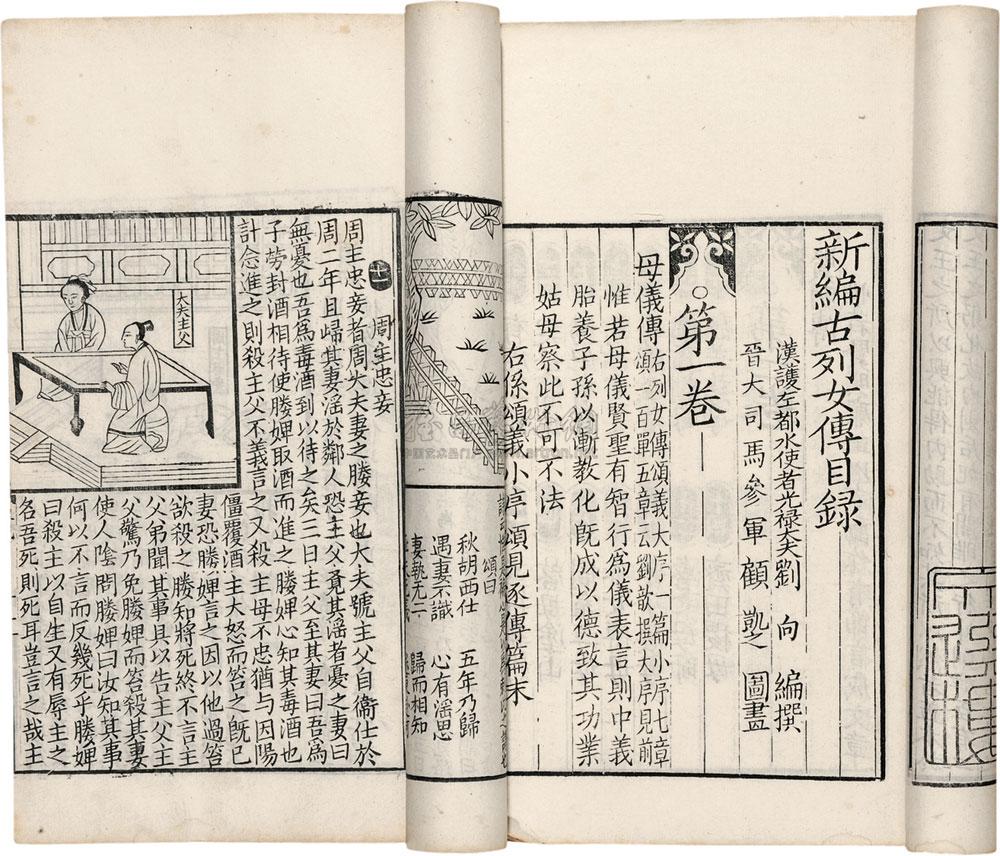 新編古列女傳目録
漢護左都水使者光禄大夫劉向編撰
晉大司馬參軍顧凱之圖畫
第一卷
母儀傳
右列女傳頌義大序一篇小序七章
頌一百單五章云劉歆撰大序見前
惟若母儀賢聖有智行爲儀表言則中義
胎養子孫以漸教化既成以德致其功業
姑母察此不可不法
右係頌義小序頌見逐傳篇末
頌曰
秋胡西仕
五年乃歸
遇妻不識
心有淫思
妻執无二
歸而相知
十一
周主忠妾
周主忠妾者周大夫妻之媵妾也大夫號主父自衞仕於
周二年且歸其妻淫於鄰人恐主父竟其淫者憂之妻曰
無憂也吾爲毒酒到以待之矣三日主父至其妻曰吾爲
子勞封酒相待使媵婢取酒而進之媵婢心知其毒酒也
計念進之則殺主父不義言之又殺主母不忠猶与因陽
大夫主父
僵覆酒主大怒而笞之既已
妻恐媵婢言之因以他過笞
欲殺之媵知將死終不言主
父弟聞其事具以告主父主
父驚乃免媵婢而笞殺其妻
使人陰問媵婢曰汝知其事
何以不言而反幾死乎媵婢
曰殺主以自生又有辱主之
名吾死則死耳豈言之哉主